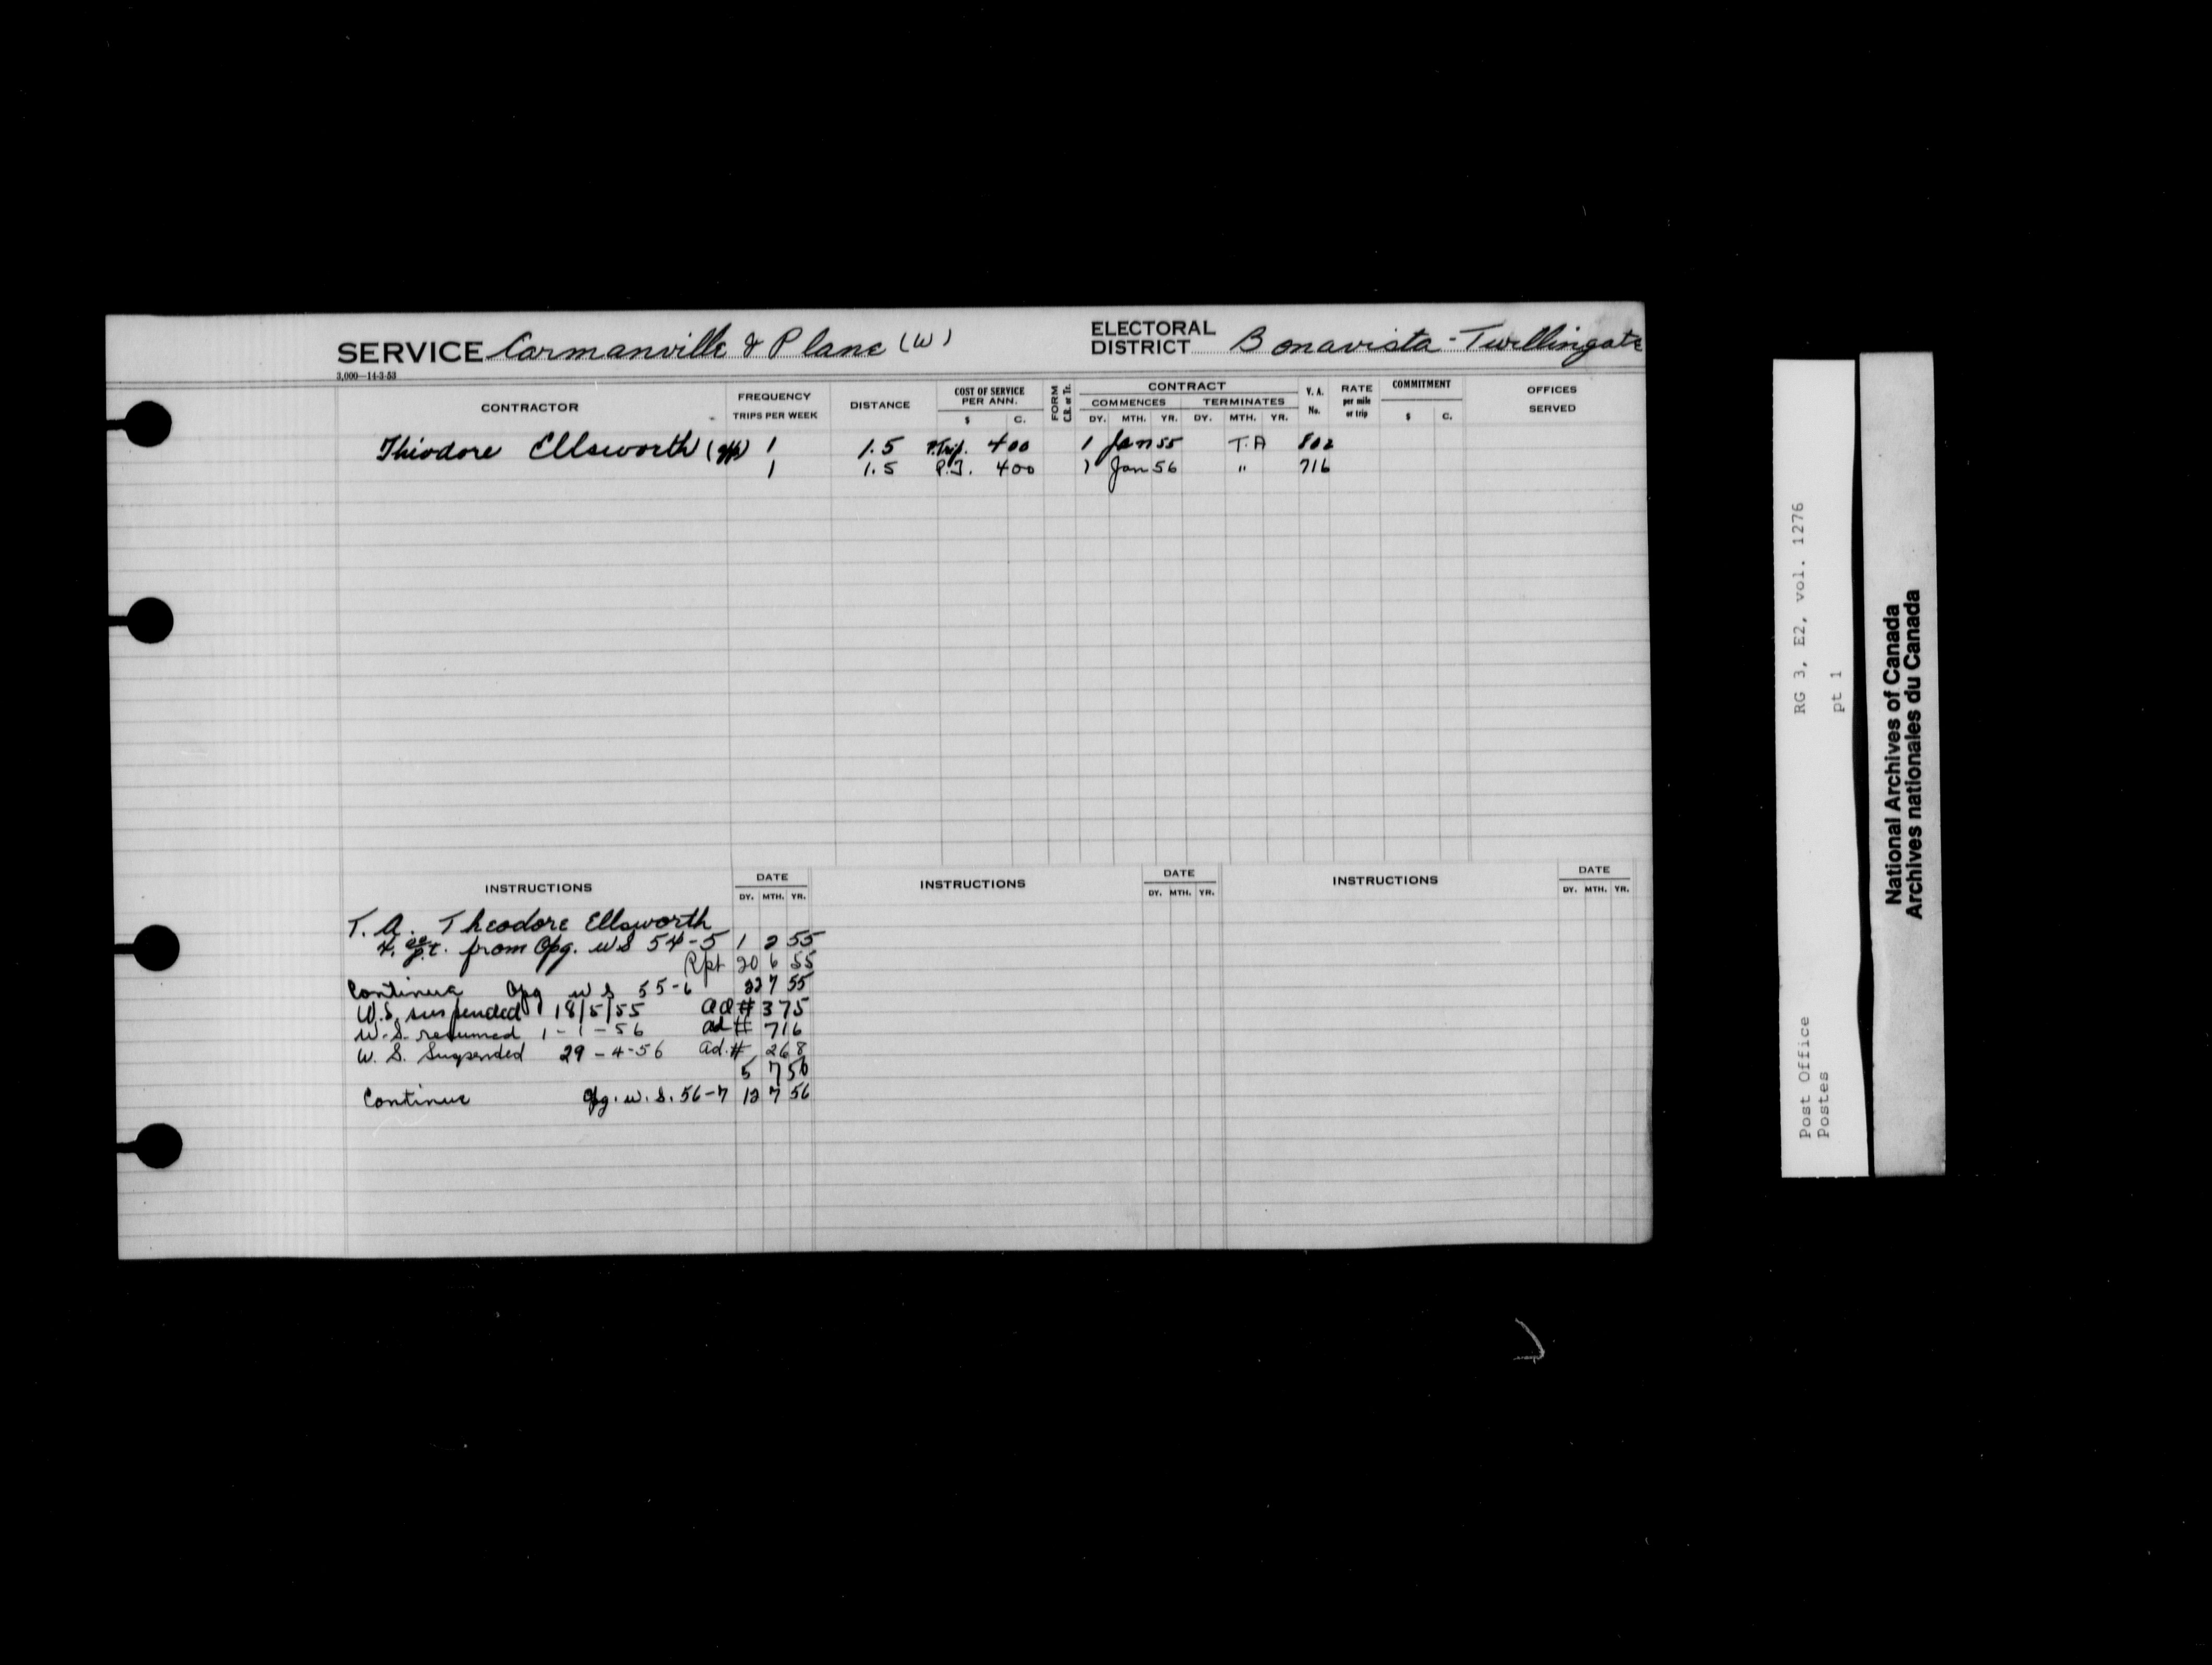 SERVICE Carmanville & Plane (W) ELECTORAL DISTRICT Bonavista-Twillingate
3,000—14-3-53
CONTRACTOR FREQUENCY TRIPS PER WEEK DISTANCE COST OF SERVICE PER ANN. $ C. FORM C.R. or Tr. CONTRACT COMMENCES DY. MTH. YR. TERMINATES DY. MTH. YR. V. A. No. RATE per mile or trip COMMITMENT $ C. OFFICES SERVED
Theodore Ellsworth 1 1.5 P.Trip. 4 00 1 Jan 55 T.A 802
1 1.5 P.T. 4 00 1 Jan 56 " 716
INSTRUCTIONS DATE DY. MTH. YR. INSTRUCTIONS DATE DY. MTH. YR. INSTRUCTIONS DATE DY. MTH. YR.
T. A. Theodore Ellsworth
4. 00 p.t. from Opg. W S 54-5 1 2 55
Rpt 20 6 55
Continue Opg W S 55-6 22 7 55
W.S. suspended 18/5/55 ad # 375
W.S. resumed 1-1-56 ad # 716
W. S. Suspended 29-4-56 ad.# 268
5 7 56
Continue Opg. W. S. 56-7 12 7 56
RG 3, E2, vol. 1276
pt 1
Post Office
Postes
National Archives of Canada
Archives nationales du Canada